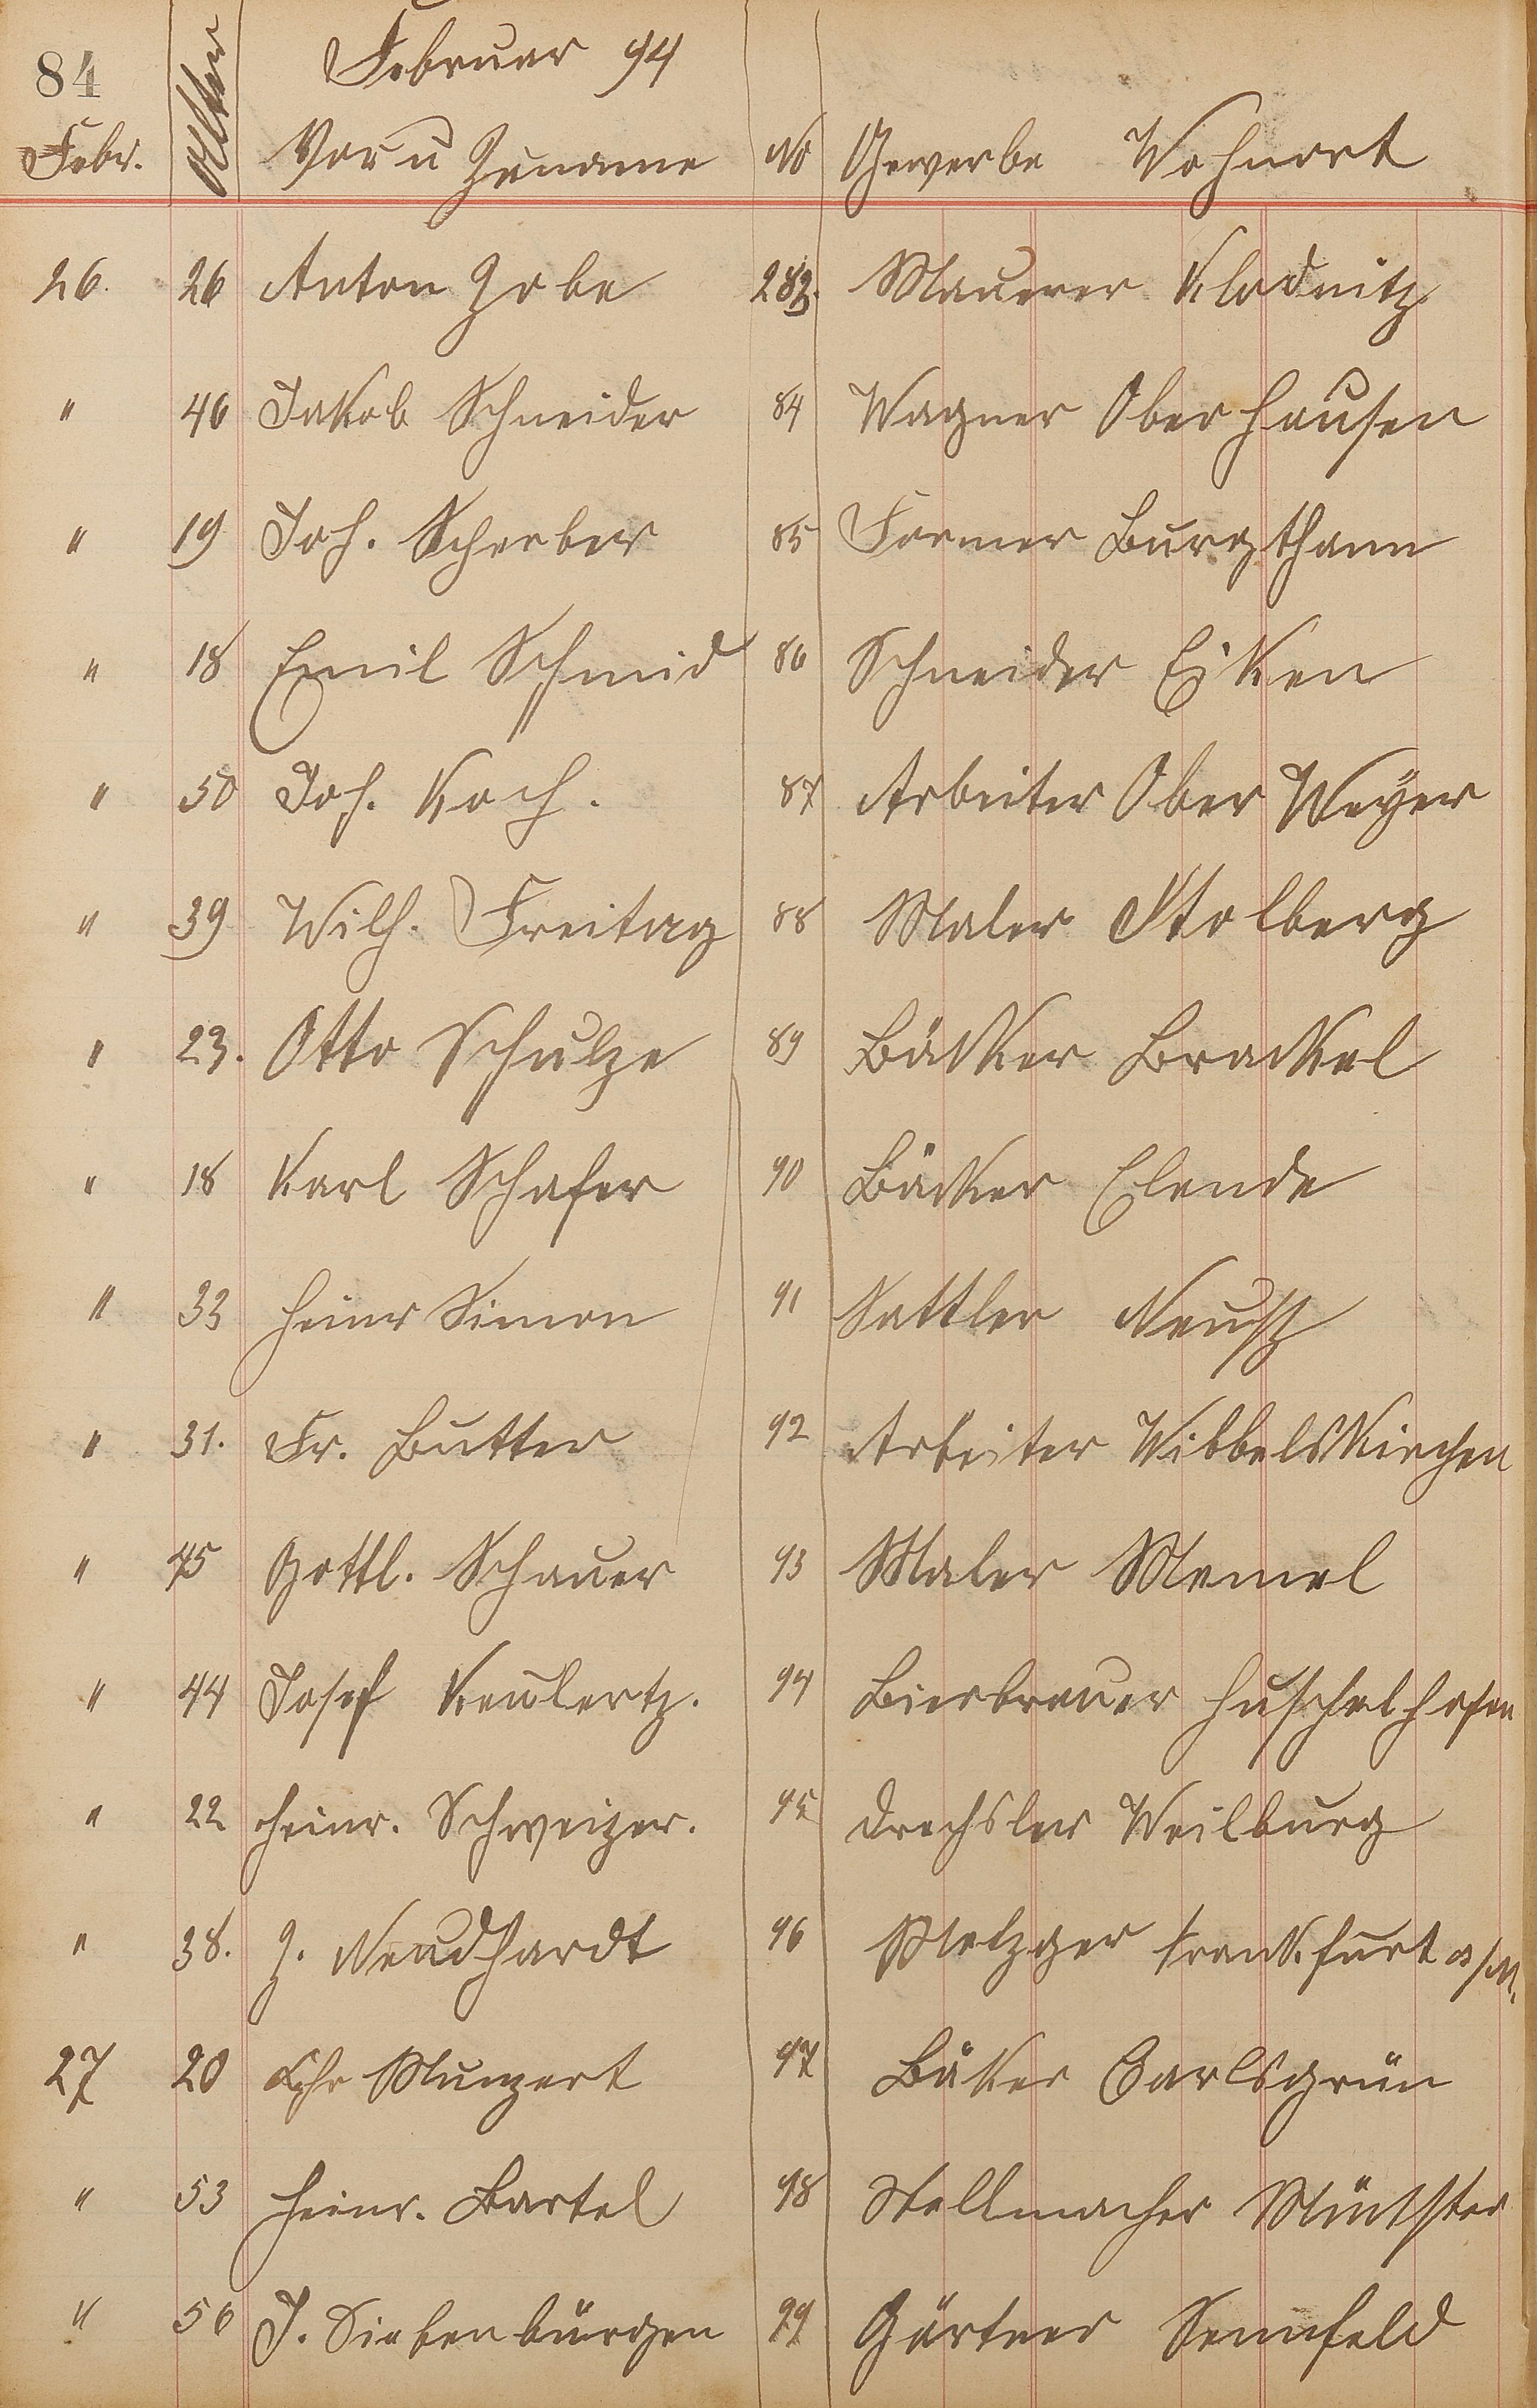 84 Februar 94
Febr. Alter Vor u Zuname No Gewerbe Wohnort
26. 26 Anton Gobe 283. Maurer Klodnitz
" 46 Jakob Schneider 84 Wagner Oberhausen
" 19 Joh. Scherber 85 Former Burgthann
" 18 Emil Schmid 86 Schneider Eiken
" 50 Joh. Koch. 87 Arbeiter Ober Weyer
" 39 Wilh. Freitag 88 Maler Stolberg
" 23. Otto Schulze 89 Bäcker Brackel
" 18 Karl Schafer 90 Bäcker Elende
" 33 Heinr Simon 91 Sattler Neuß
" 31. Fr. Butter 92 Arbeiter Wibbelskirchen
" 45 Gottl. Schauer 93 Maler Memel
" 44 Josef Keulertz. 94 Bierbrauer Huschelhofen
" 22 Heinr. Schweizer. 95 Drechsler Weilburg
" 38. J. Neudhardt 96 Metzger Frankfurt a/M.
27 20 Chr Munzert 97 Bäker Carlsgrün
" 53 Heinr. Bartel 98 Stellmacher
" 56 J. Siebenbürgen 99 Gärtner Sennfeld